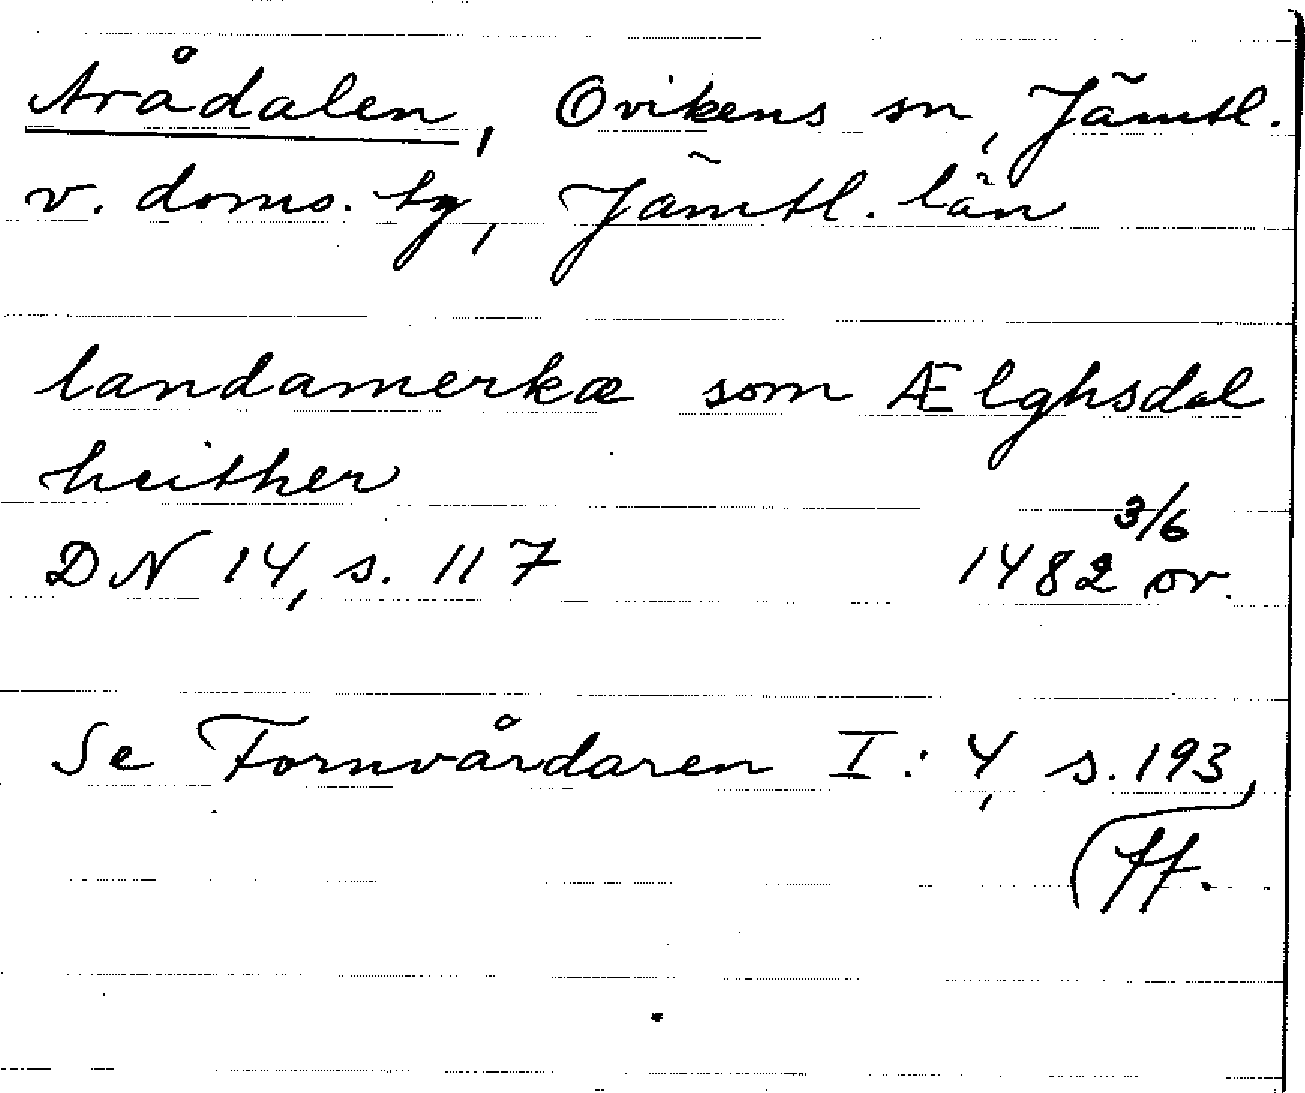 Arådalen, Ovikens sn, Jämtl.
v. doms. tg, Jämtl. län
landamerkæ som Ælghsdal
heither
DN 14, s. 117 1482 3/6 or.
Se Fornvårdaren I: 4, s. 193
ff.